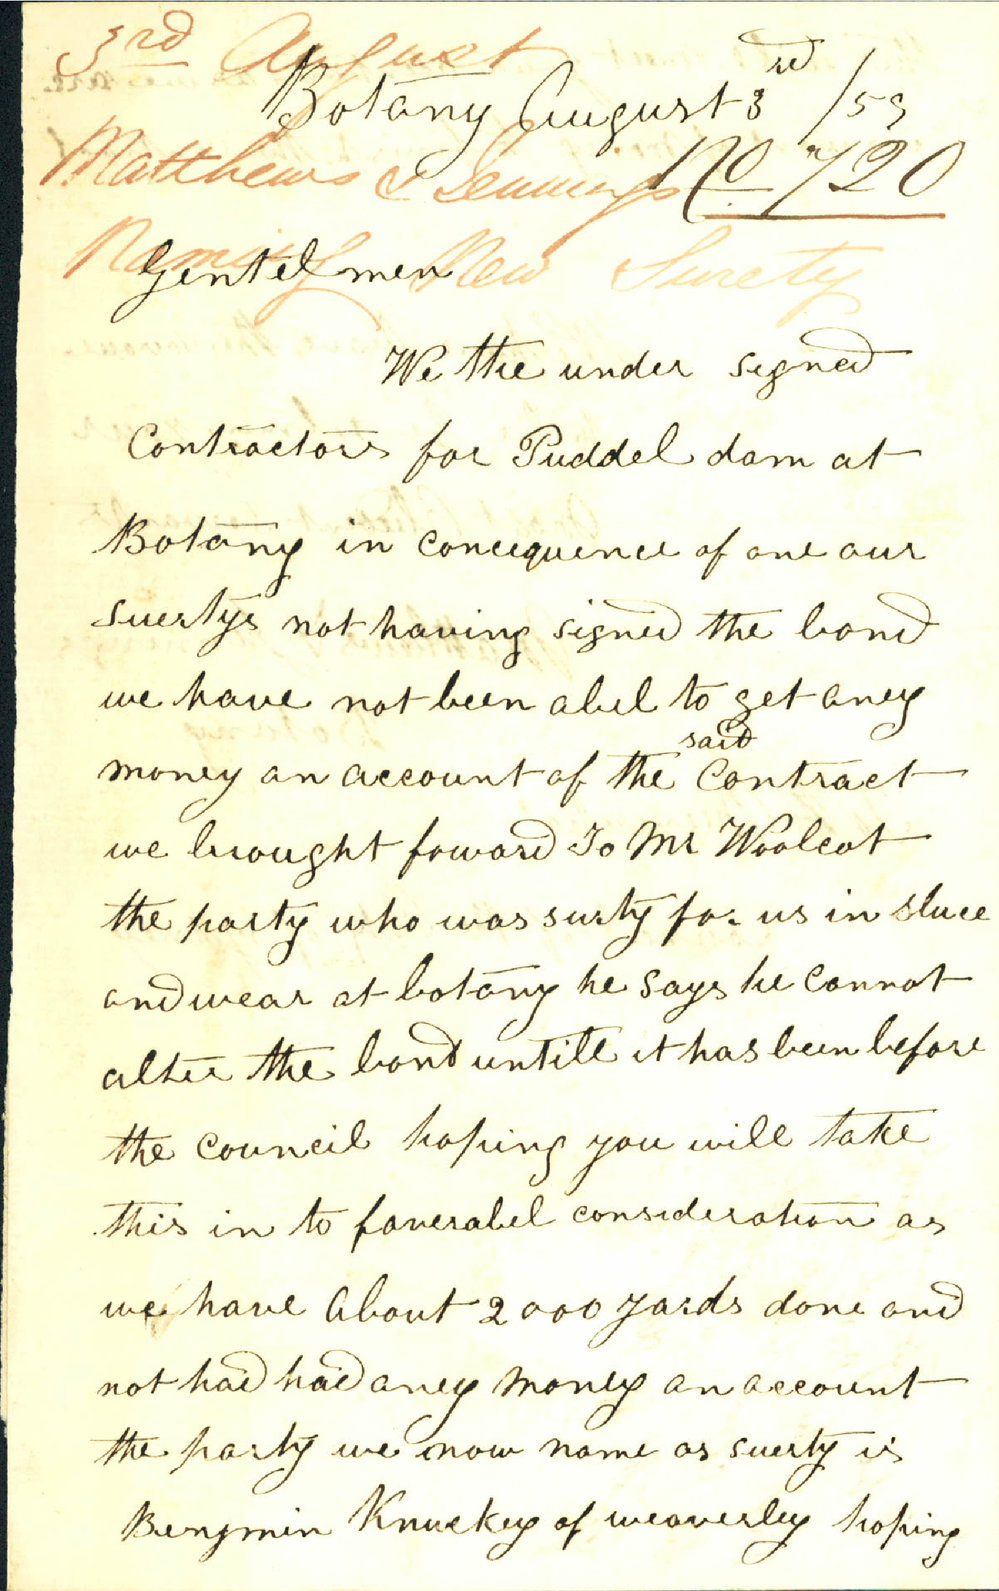 3rd August
Botany August 3rd /53
Matthews & Jennings
No 720
Naming New Surety
Gentelmen
We the under signed
Contractors for Puddel dam at
Botany in concequence of one our
suertys not having signed the bond
we have not been abel to get aney
money an account of the said Contract
we brought foward To Mr Woolcot
the party who was surty for us in sluce
and wear at botany he says he Cannot
alter the bond untill it has been before
the Council hoping you will take
this in to faverabel consideration as
we have About 2000 yards done and
not had had aney money an account
the party we now name as suerty is
Bengmin Knuckey of weaverley hoping